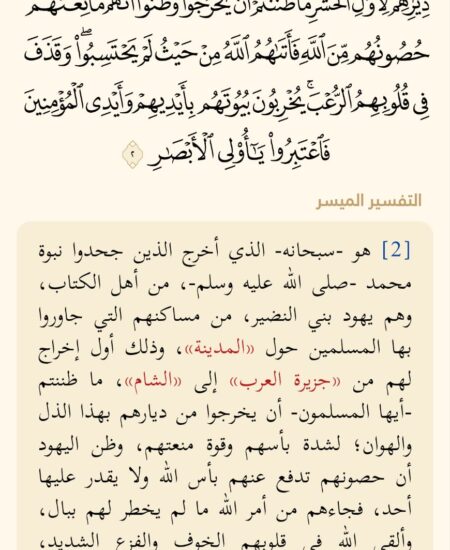 دِيَٰرِهِمْ لِأَوَّلِ ٱلْحَشْرِ مَا ظَنَنتُمْ أَن يَخْرُجُوا۟ وَظَنُّوٓا۟ أَنَّهُم مَّانِعَتُهُمْ
حُصُونُهُم مِّنَ ٱللَّهِ فَأَتَىٰهُمُ ٱللَّهُ مِنْ حَيْثُ لَمْ يَحْتَسِبُوا۟ ۖ وَقَذَفَ
فِى قُلُوبِهِمُ ٱلرُّعْبَ ۚ يُخْرِبُونَ بُيُوتَهُم بِأَيْدِيهِمْ وَأَيْدِى ٱلْمُؤْمِنِينَ
فَٱعْتَبِرُوا۟ يَٰٓأُو۟لِى ٱلْأَبْصَٰرِ ٢
التفسير الميسر
[2] هو -سبحانه- الذي أخرج الذين جحدوا نبوة
محمد -صلى الله عليه وسلم-، من أهل الكتاب،
وهم يهود بني النضير، من مساكنهم التي جاوروا
بها المسلمين حول «المدينة»، وذلك أول إخراج
لهم من «جزيرة العرب» إلى «الشام»، ما ظننتم
-أيها المسلمون- أن يخرجوا من ديارهم بهذا الذل
والهوان؛ لشدة بأسهم وقوة منعتهم، وظن اليهود
أن حصونهم تدفع عنهم بأس الله ولا يقدر عليها
أحد، فجاءهم من أمر الله ما لم يخطر لهم ببال،
وألقى الله في قلوبهم الخوف والفزع الشديد،